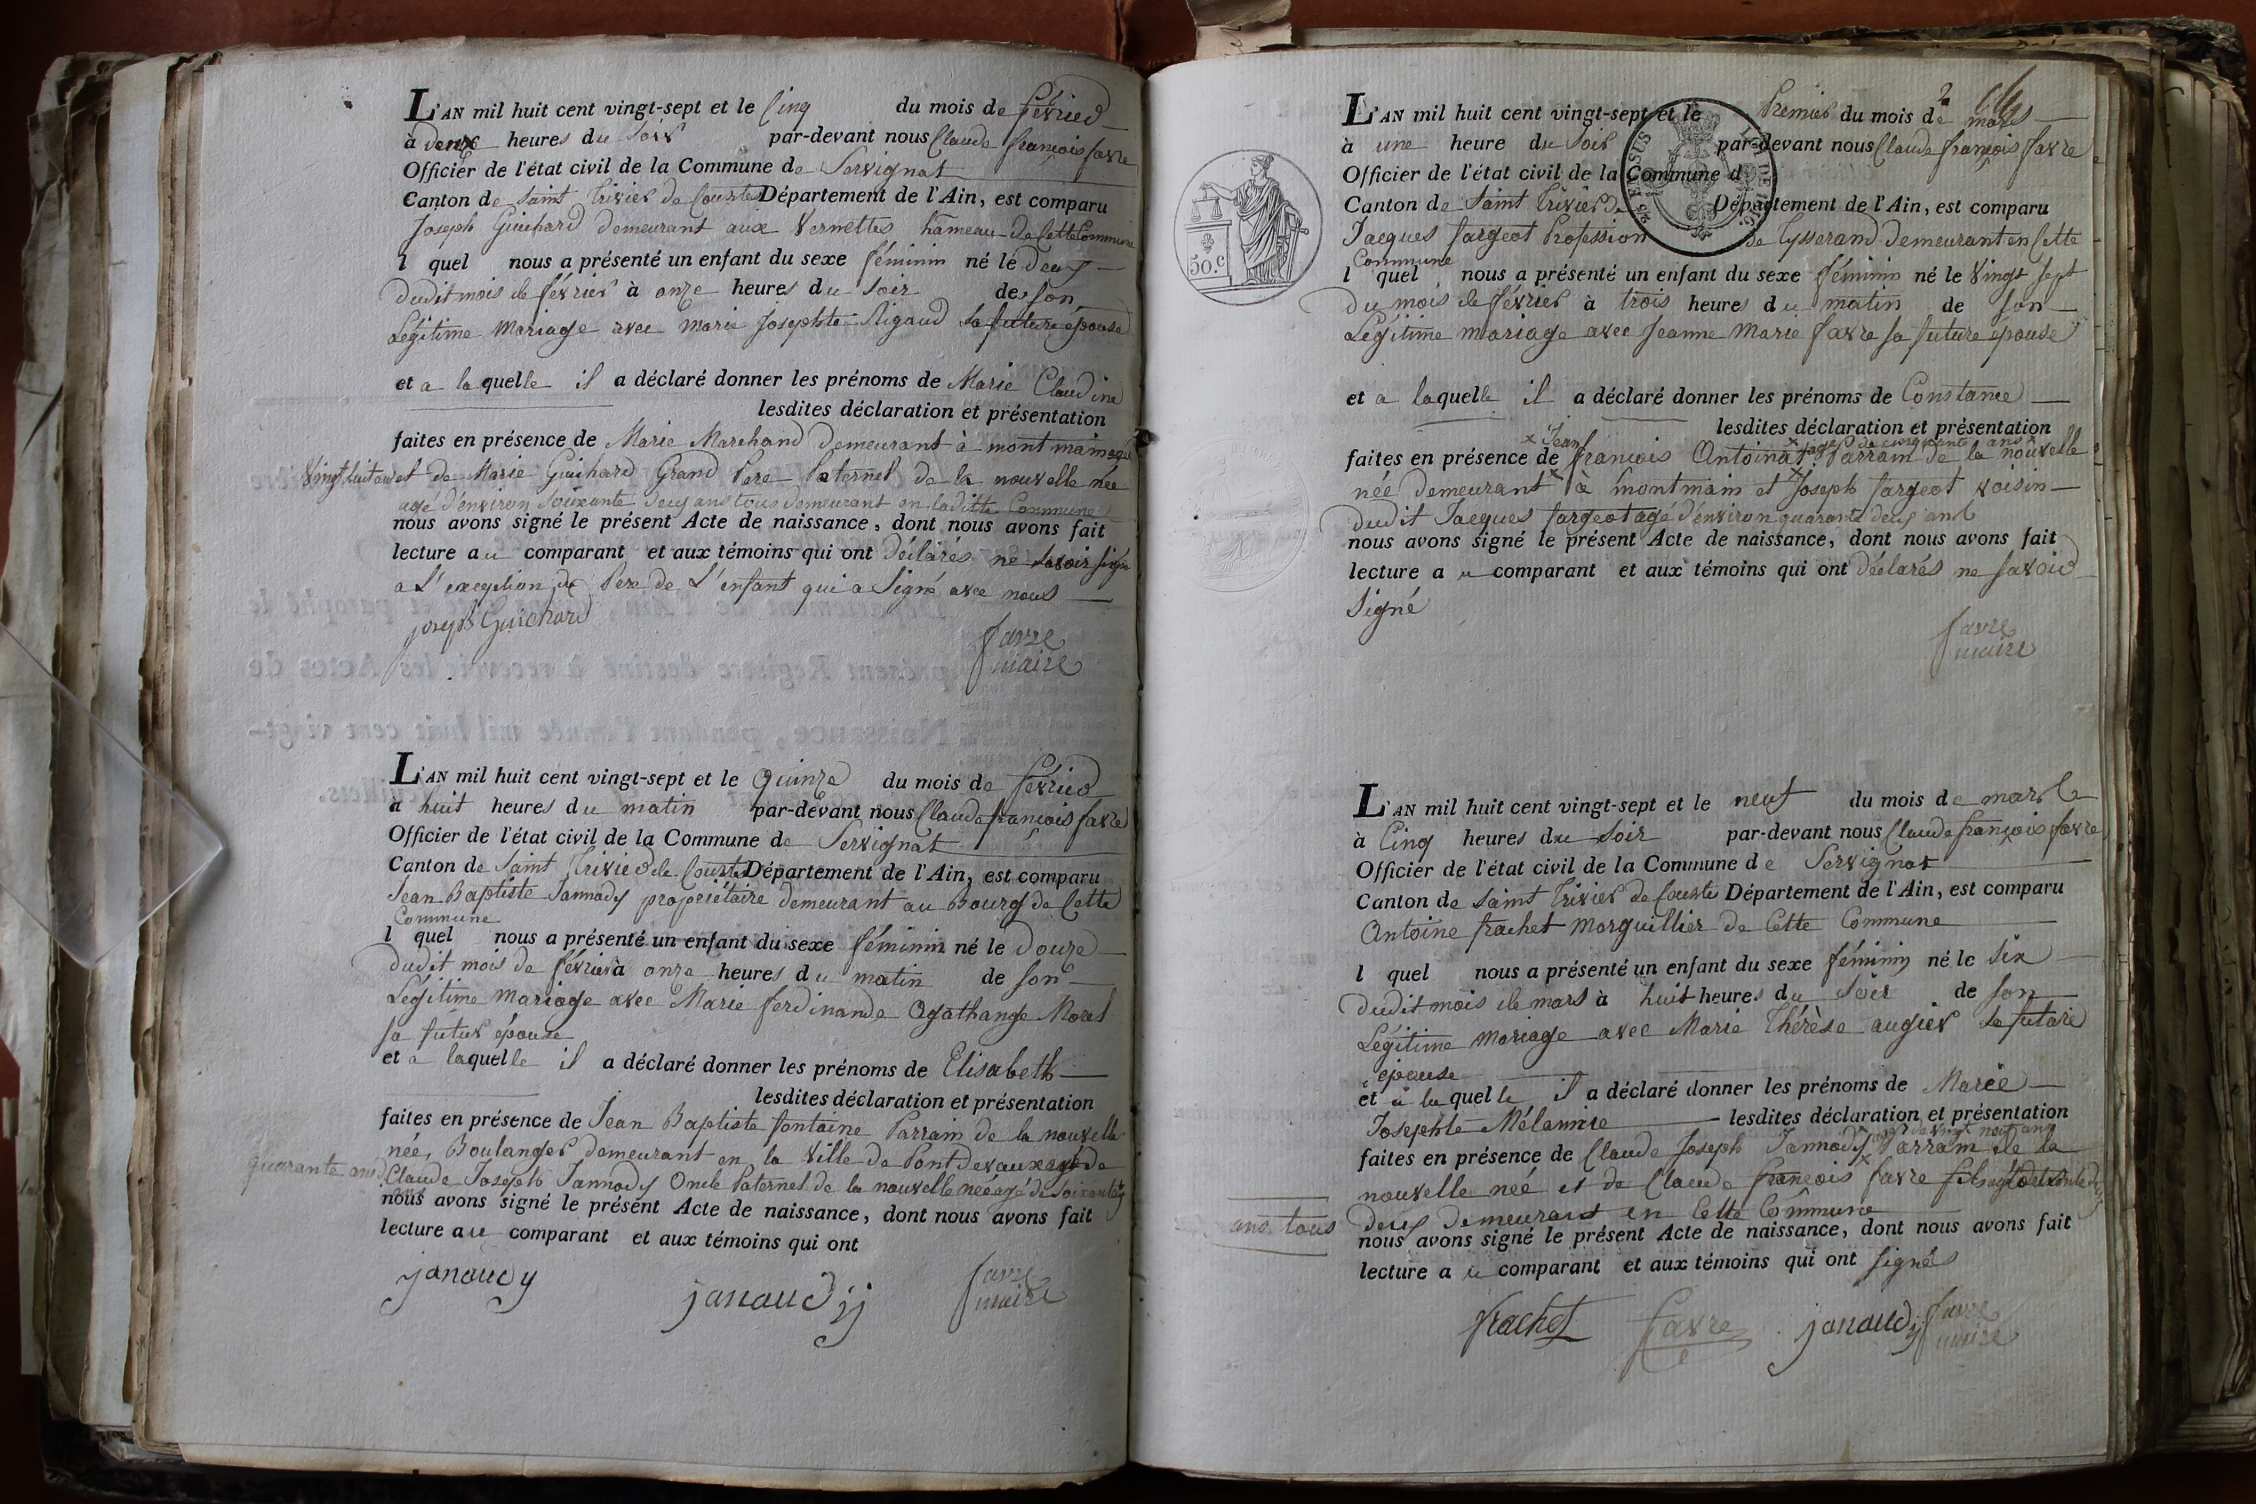 L'AN mil huit cent vingt-sept et le Cinq du mois de février
à deux heures du soir par-devant nous Claude françois favre
Officier de l'état civil de la Commune de Servignat
Canton de Saint Trivier de Courtes Département de l'Ain, est comparu
Joseph Guichard demeurant aux Vernettes hameau de Cette Commune
l quel nous a présenté un enfant du sexe féminin né le deux
dudit mois de février à onze heures du soir de son
Légitime mariage avec marie Josephte Rigaud sa future épouse
et a laquelle il a déclaré donner les prénoms de Marie Claudine
lesdites déclaration et présentation
faites en présence de Marie Marchand demeurant à montmain agé
Vingt huit ans et de Marie Guichard Grand Pere Paternel de la nouvelle née
agé d'environ Soixante deux ans tous demeurant en laditte Commune
nous avons signé le présent Acte de naissance, dont nous avons fait
lecture au comparant et aux témoins qui ont déclarés ne savoir signé
a L'exception du Pere de L'enfant qui a Signé avec nous
joseph Guichard
favre
maire
L'AN mil huit cent vingt-sept et le quinze du mois de février
à huit heures du matin par-devant nous Claude françois favre
Officier de l'état civil de la Commune de Servignat
Canton de Saint Trivier de Courtes Département de l'Ain, est comparu
Jean Baptiste Jannody propriétaire demeurant au Bourg de Cette
Commune
l quel nous a présenté un enfant du sexe féminin né le douze
dudit mois de février à onze heures du matin de son
Légitime mariage avec Marie ferdinande Agathange Morel
sa futur épouse
et a laquelle il a déclaré donner les prénoms de Elisabeth
lesdites déclaration et présentation
faites en présence de Jean Baptiste fontaine Parrain de la nouvelle
née, Boulanger demeurant en la Ville de Pontdevaux agé de
quarante ans Claude Joseph Jannody Oncle Paternel de la nouvelle née agé de soixante
nous avons signé le présent Acte de naissance, dont nous avons fait
lecture au comparant et aux témoins qui ont
janaudy
janaudy
favre
maire
2
L'AN mil huit cent vingt-sept et le Premier du mois de mars
à une heure du soir par-devant nous Claude françois favre
Officier de l'état civil de la Commune d
Canton de Saint Trivier de Département de l'Ain, est comparu
50.c
Jacques fargeot Profession de Tysserand demeurant en Cette
Commune
l quel nous a présenté un enfant du sexe féminin né le Vingt sept
du mois de février à trois heures du matin de son
Légitime mariage avec Jeanne Marie favre sa future épouse
et a laquelle il a déclaré donner les prénoms de Constance
lesdites déclaration et présentation
x Jean x agé de cinquante ans x
faites en présence de françois Antoina Parrain de la nouvelle
née demeurant à montmain et Joseph fargeot voisin
dudit Jacques fargeot agé d'environ quarante deux ans
nous avons signé le présent Acte de naissance, dont nous avons fait
lecture au comparant et aux témoins qui ont déclarés ne savoir
signé
favre
maire
L'AN mil huit cent vingt-sept et le neuf du mois de mars
à Cinq heures du soir par-devant nous Claude françois favre
Officier de l'état civil de la Commune de Servignat
Canton de Saint Trivier de Courtes Département de l'Ain, est comparu
Antoine frachet Marguillier de Cette Commune
l quel nous a présenté un enfant du sexe féminin né le Six
dudit mois de mars à huit heures du soir de son
Légitime mariage avec Marie Thérèse augier sa future
épouse
et à laquelle il a déclaré donner les prénoms de Marie
Josephte Mélannie lesdites déclaration et présentation
agé de vingt neuf ans
faites en présence de Claude Joseph Jannody Parrain de la
nouvelle née et de Claude françois favre fils agé de
ans tous deux demeurant en Cette Commune
nous avons signé le présent Acte de naissance, dont nous avons fait
lecture au comparant et aux témoins qui ont signés
frachet
favre
janaudy
favre
maire